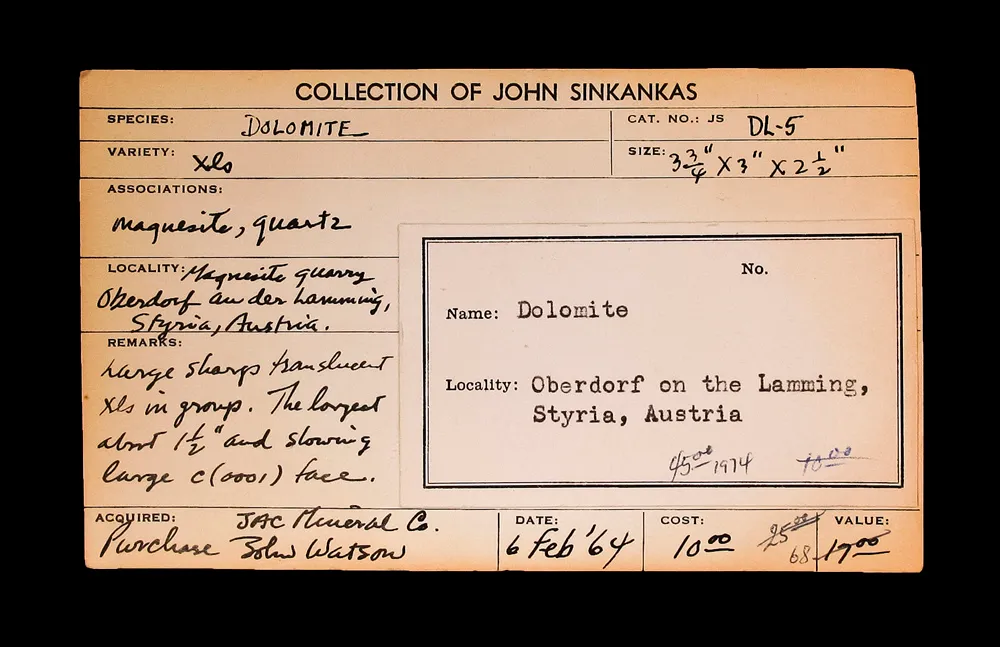 COLLECTION OF JOHN SINKANKAS
SPECIES: DOLOMITE
CAT. NO.: JS DL-5
VARIETY: xls
SIZE: 3 3/4" X 3" X 2 1/2"
ASSOCIATIONS:
magnesite, quartz
LOCALITY: Magnesite quarry
Oberdorf an der Lamming,
Styria, Austria.
REMARKS:
Large sharp translucent
xls in group. The largest
about 1 1/2" and showing
large c(0001) face.
No.
Name: Dolomite
Locality: Oberdorf on the Lamming,
Styria, Austria
45.00 1974 10.00
ACQUIRED: JAC Mineral Co.
Purchase John Watson
DATE:
6 Feb '64
COST:
10.00
25.00
68-
VALUE:
17.00